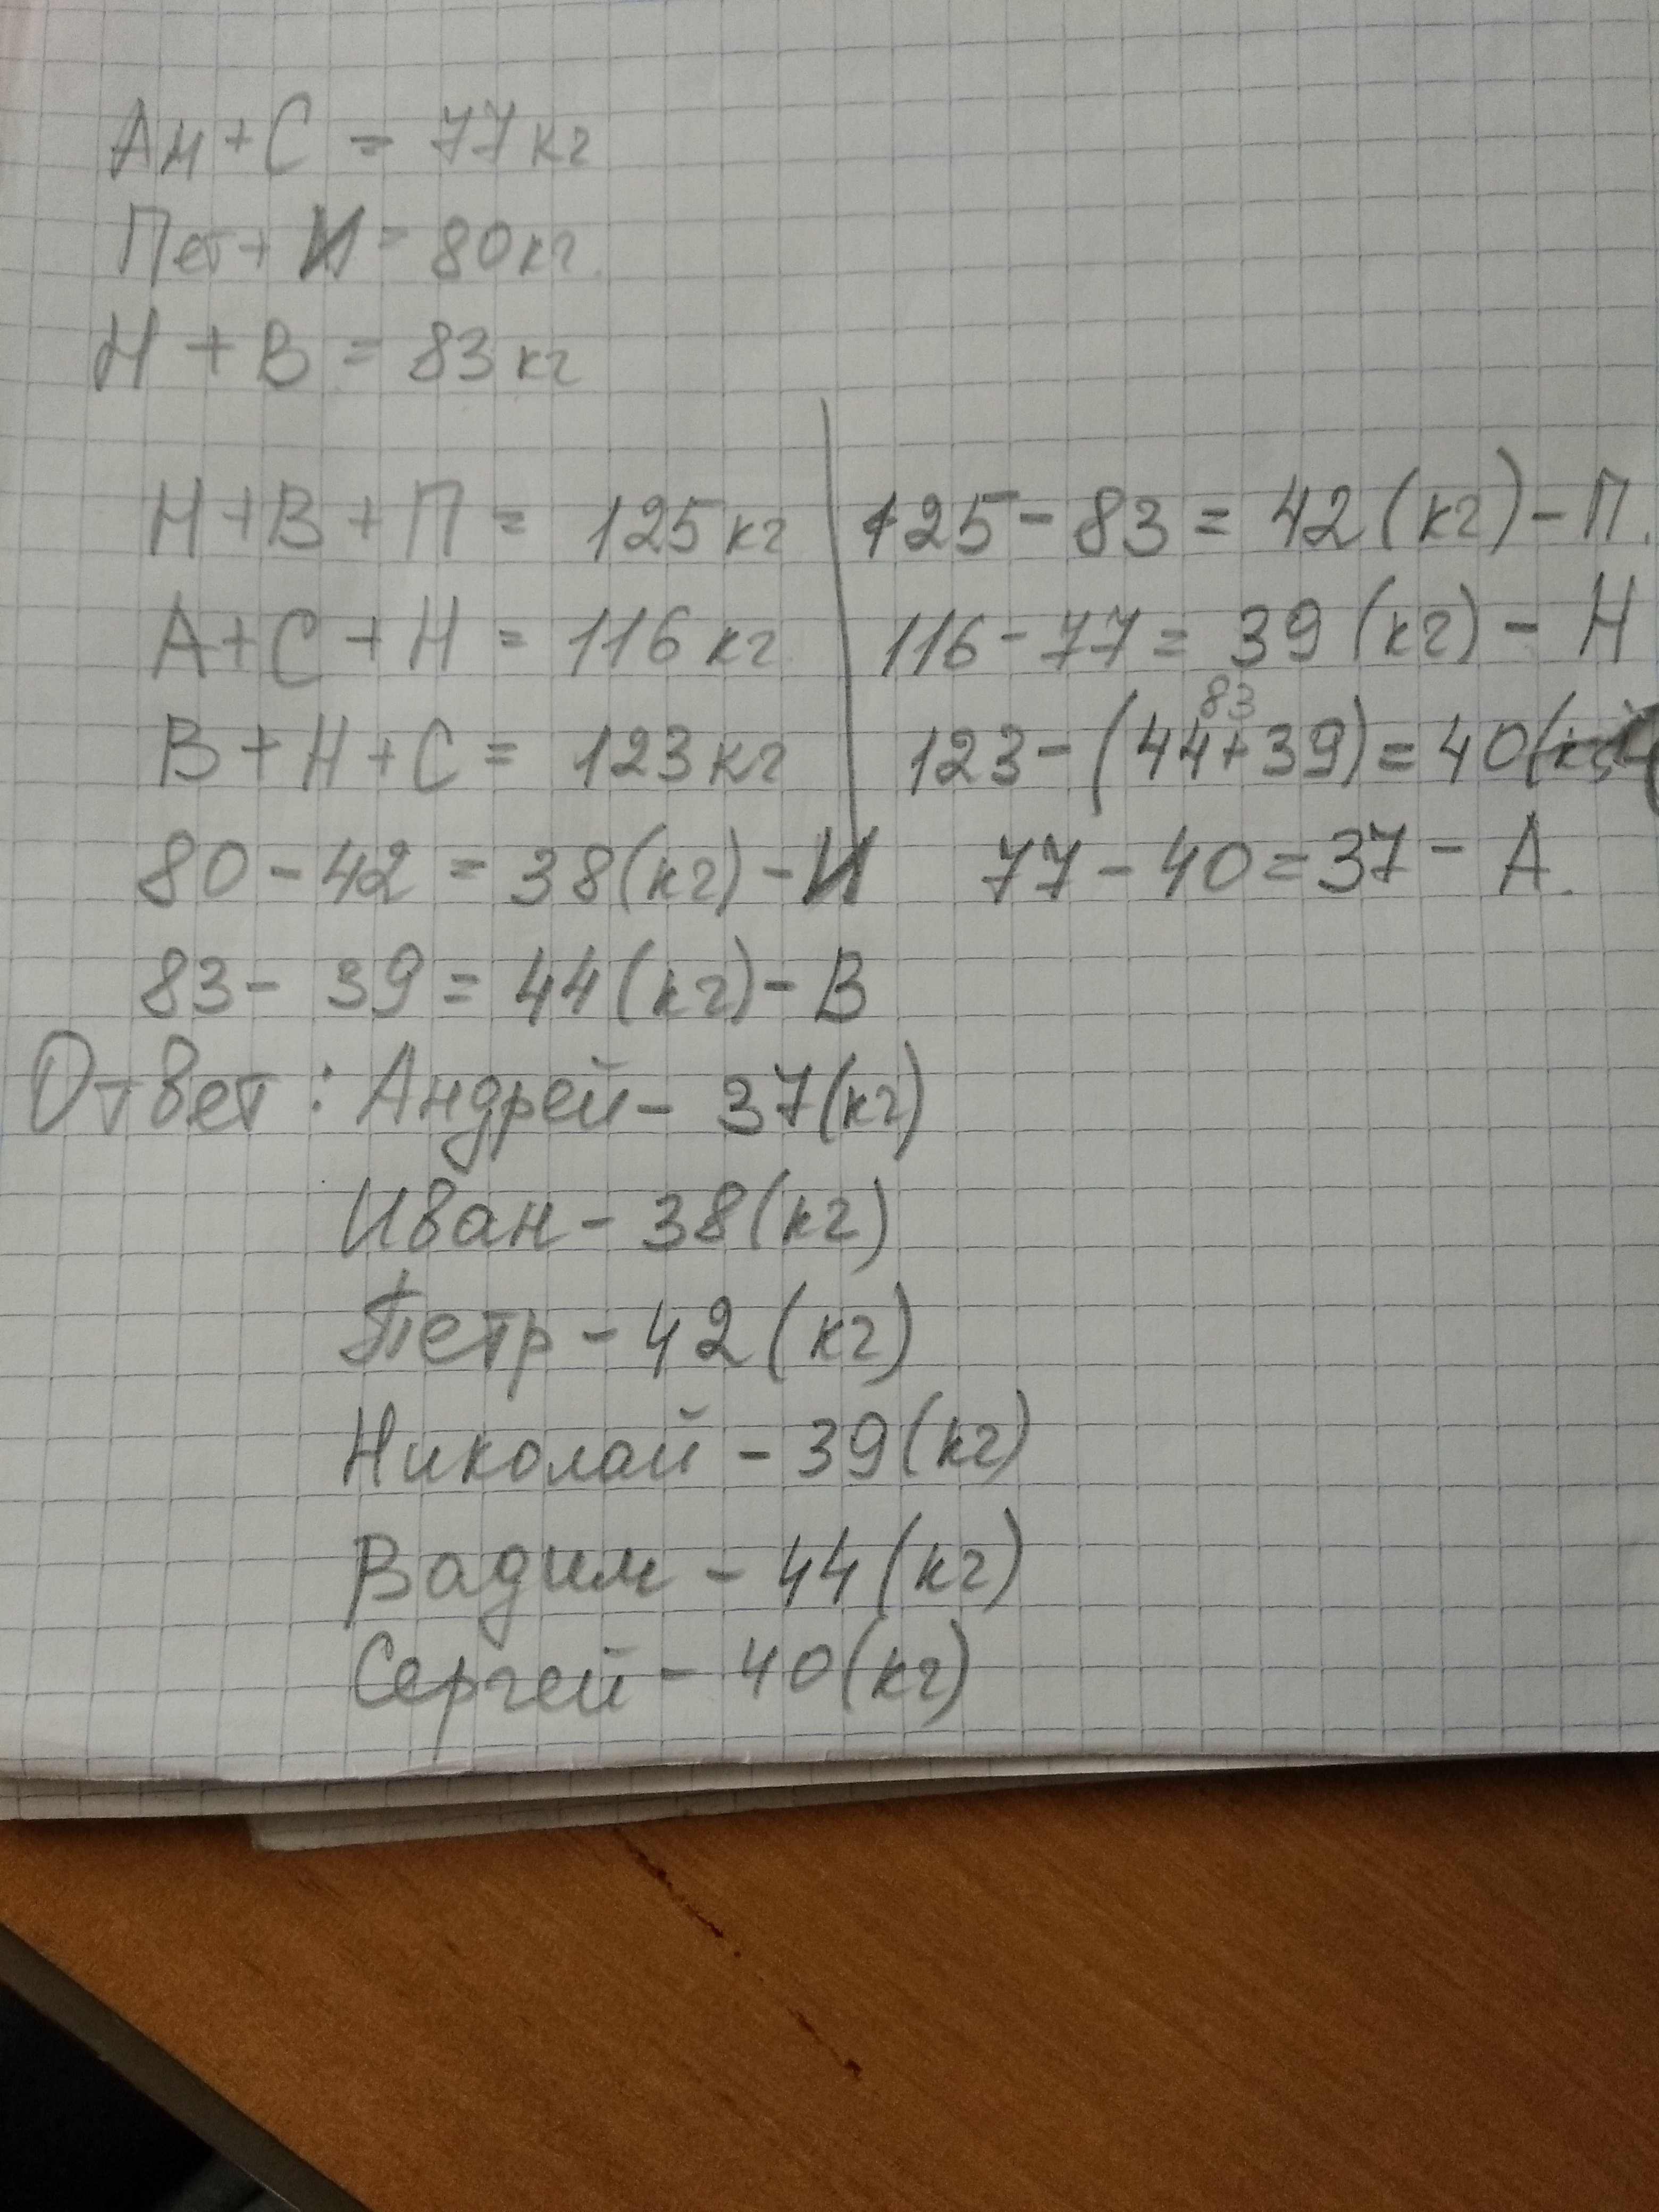 Ан + С = 77 кг
Пет + И = 80 кг.
Н + В = 83 кг
Н + В + П = 125 кг
А + С + Н = 116 кг
В + Н + С = 123 кг
125 - 83 = 42 (кг) - П.
116 - 77 = 39 (кг) - Н
83
123 - (44 + 39) = 40
80 - 42 = 38 (кг) - И
77 - 40 = 37 - А.
83 - 39 = 44 (кг) - В
Ответ: Андрей - 37 (кг)
Иван - 38 (кг)
Петр - 42 (кг)
Николай - 39 (кг)
Вадим - 44 (кг)
Сергей - 40 (кг)